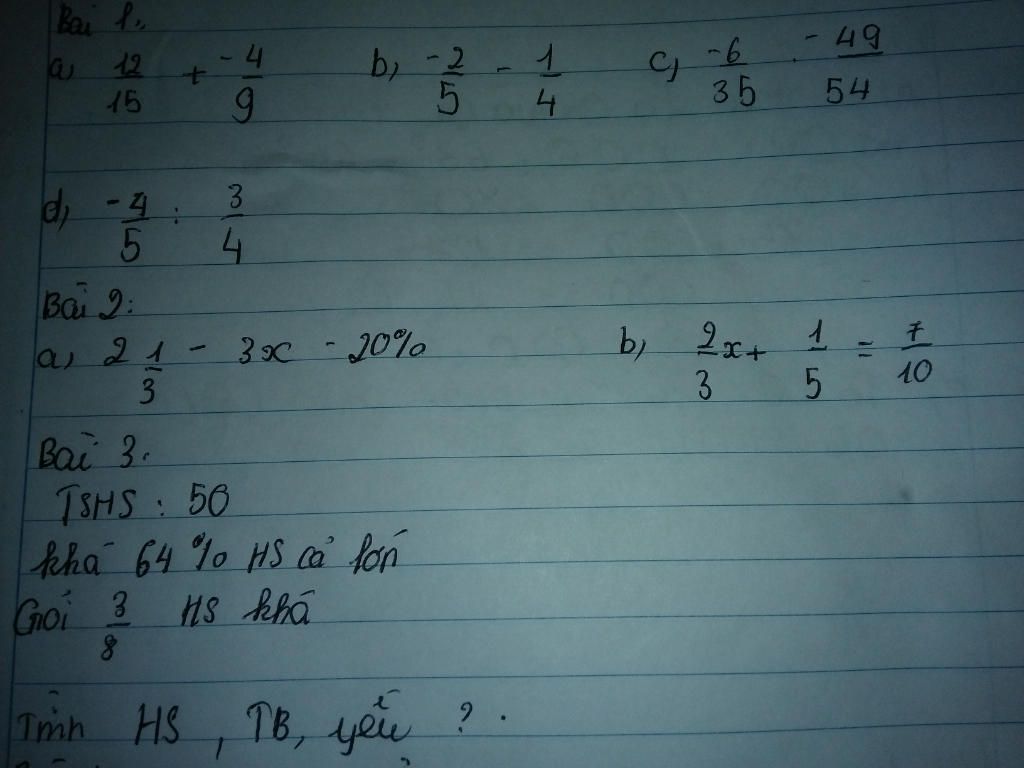 Bài 1.
a, 12/15 + -4/9 b, -2/5 - 1/4 c, -6/35 . -49/54
d, -4/5 : 3/4
Bài 2:
a, 2 1/3 - 3x - 20% b, 2/3 x + 1/5 = 7/10
Bài 3.
TSHS : 50
khá 64% HS cả lớp
Giỏi 3/8 HS khá
Tính HS, TB, yếu ?.